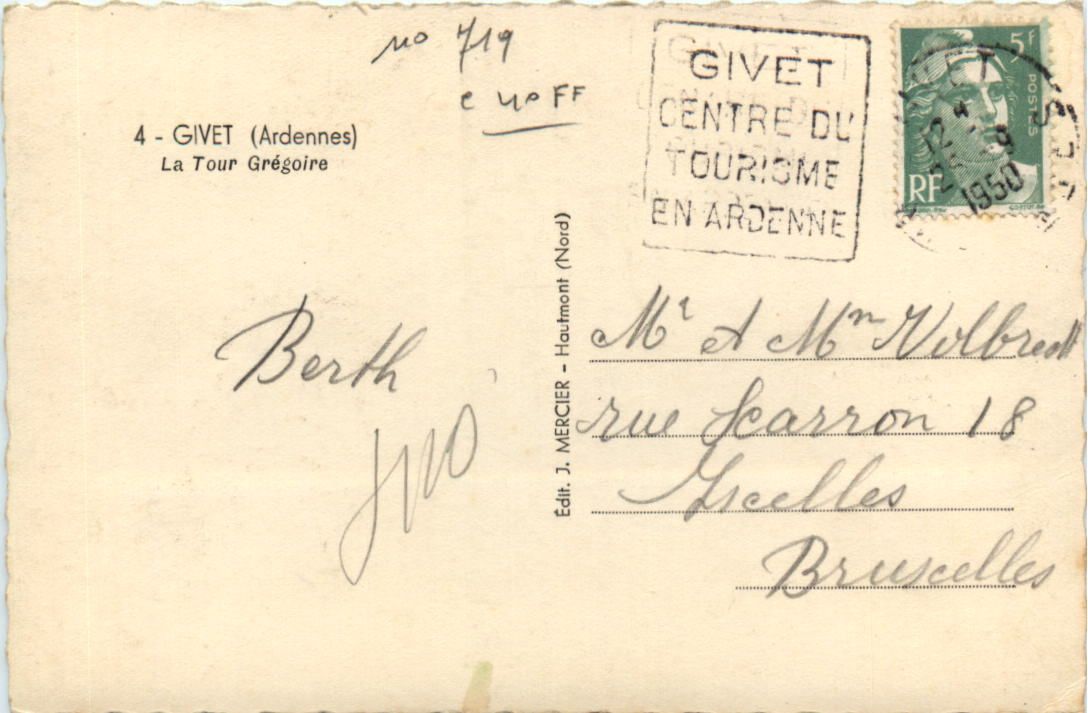 no 719
e 40 FF
4 - GIVET (Ardennes)
La Tour Grégoire
GIVET
CENTRE DU
TOURISME
EN ARDENNE
5F
POSTES
RF
12
9
1950
Édit. J. MERCIER - Hautmont (Nord)
Berth
Mr et Mm
rue Scarron 18
Ixcelles
Bruxcelles